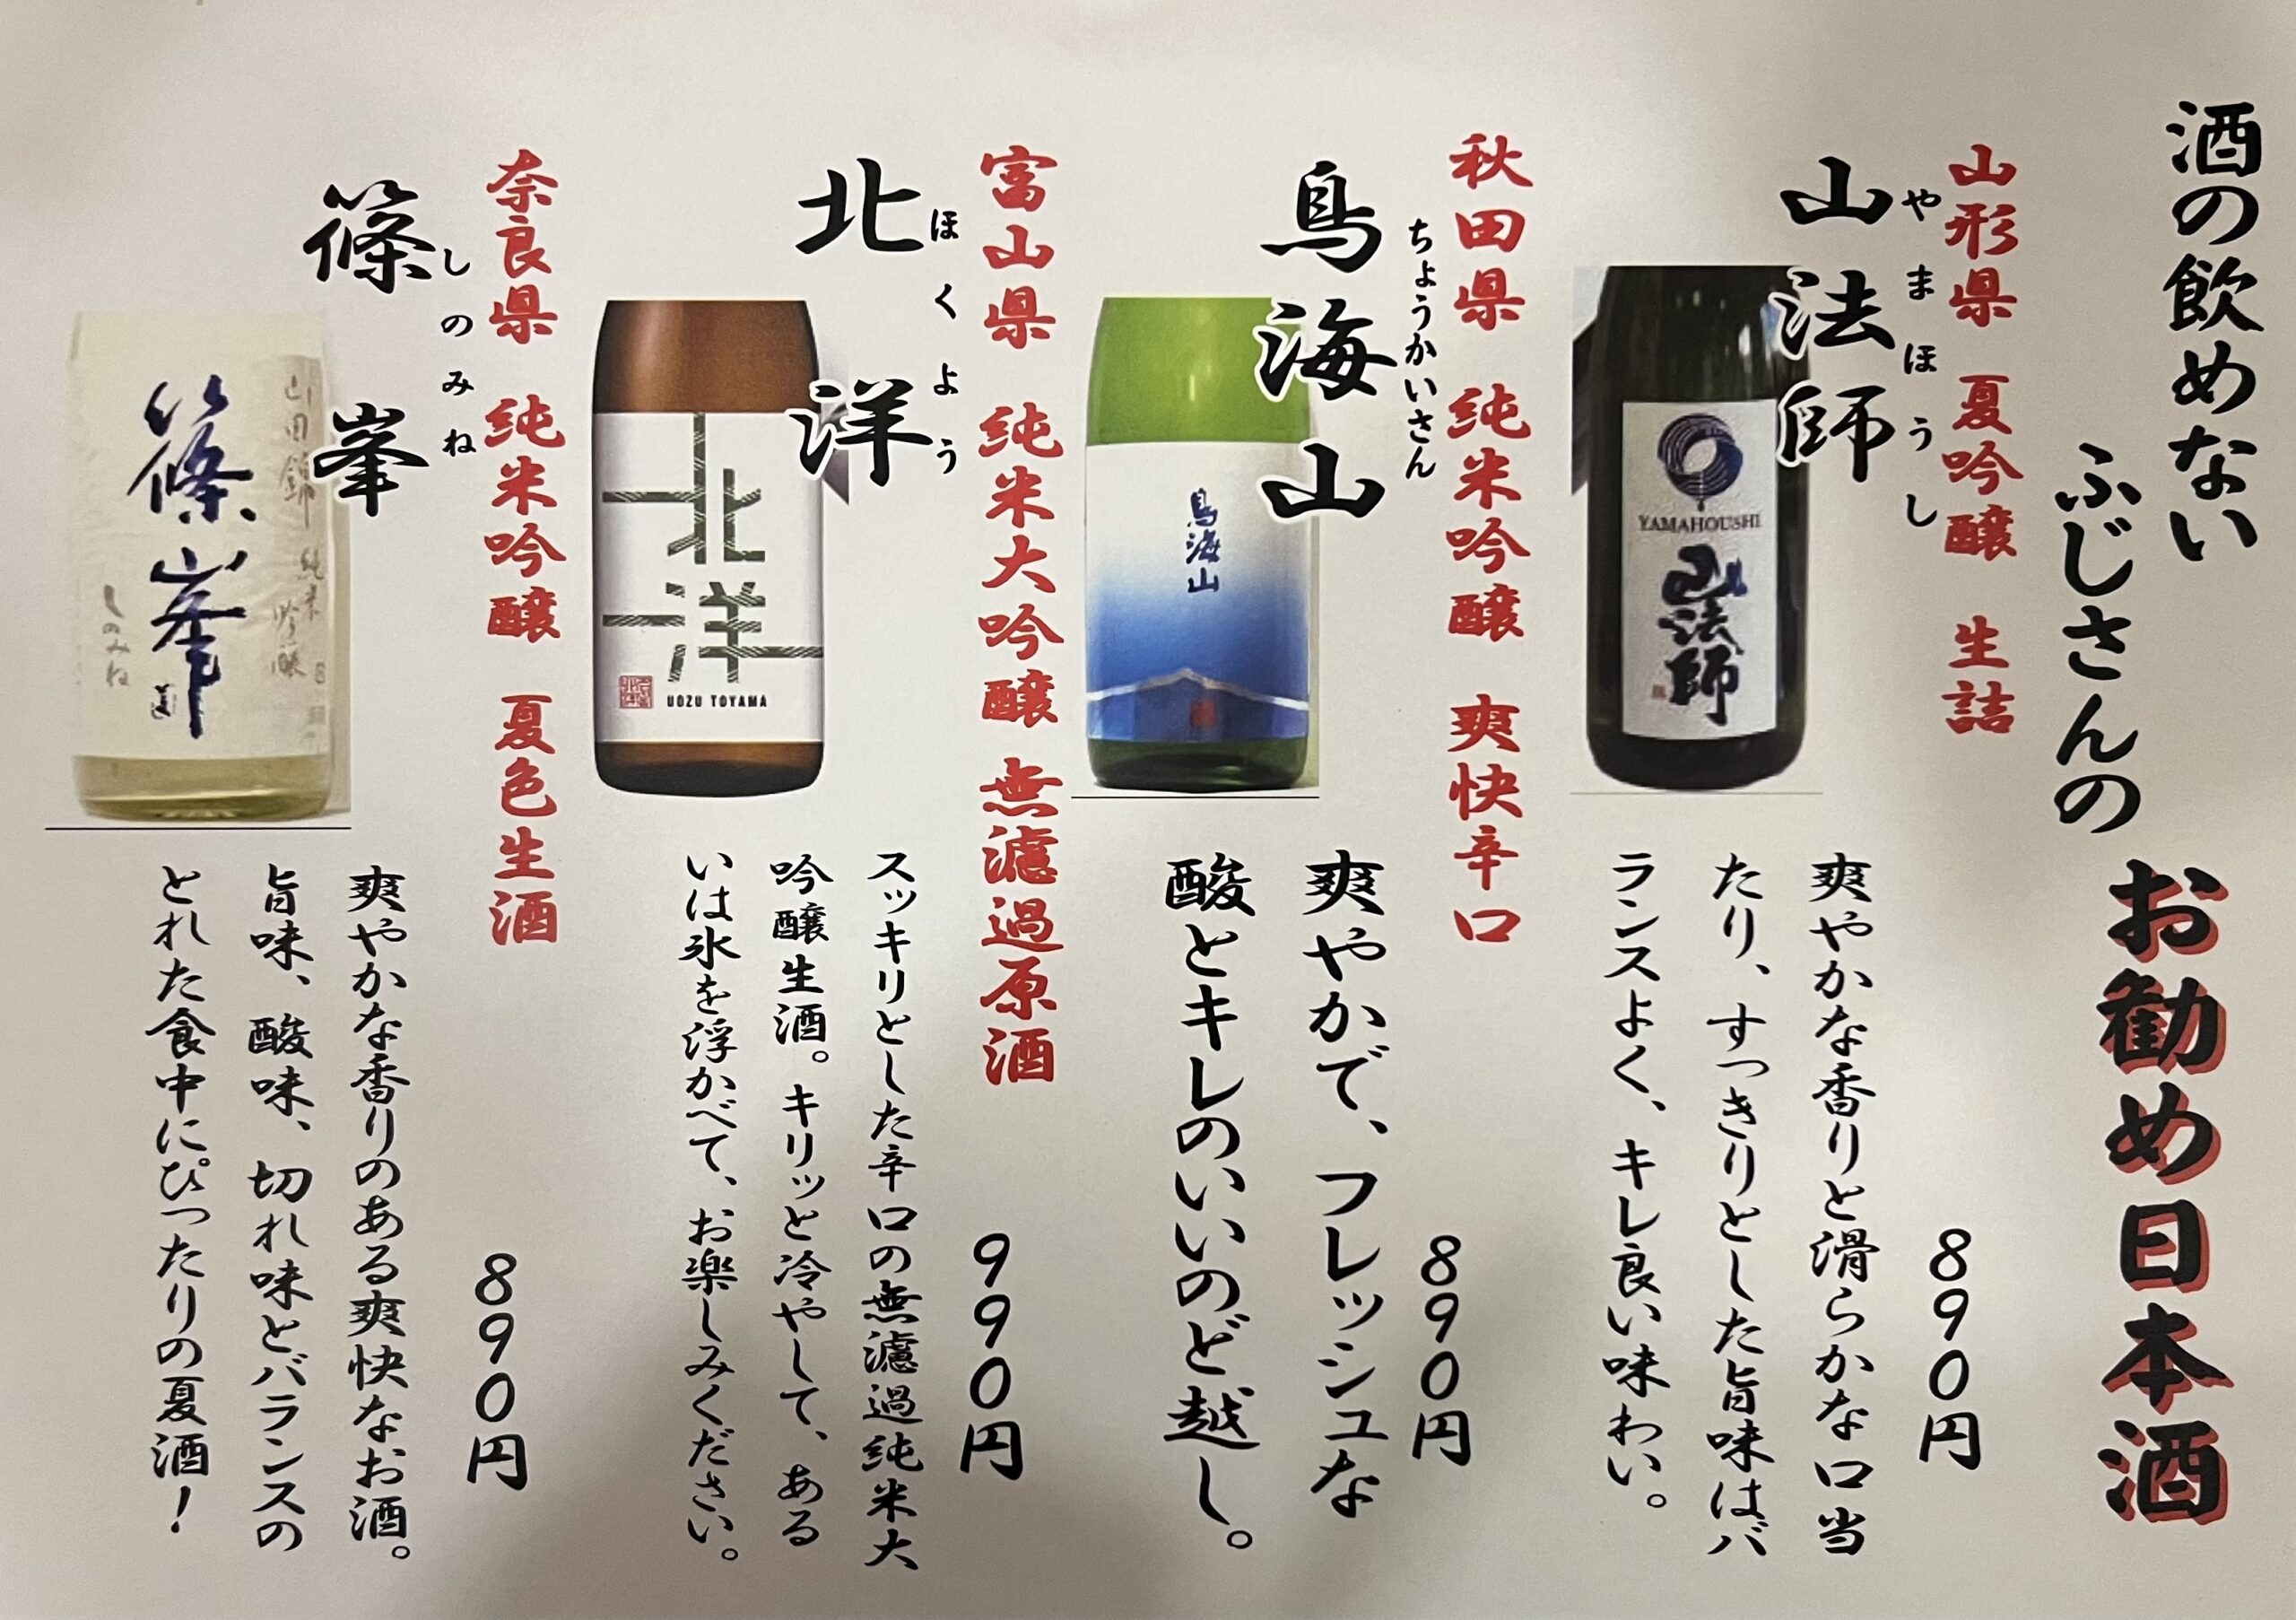 酒の飲めない
ふじさんの
お勧め日本酒
山形県 夏吟醸 生詰
やまほうし
山法師
YAMAHOUSHI
山法師
890円
爽やかな香りと滑らかな口当
たり、すっきりとした旨味はバ
ランスよく、キレ良い味わい。
秋田県 純米吟醸 爽快辛口
ちょうかいさん
鳥海山
鳥海山
890円
爽やかで、フレッシュな
酸とキレのいいのど越し。
富山県 純米大吟醸 無濾過原酒
ほくよう
北洋
北洋
UOZU TOYAMA
990円
スッキリとした辛口の無濾過純米大
吟醸生酒。キリッと冷やして、ある
いは氷を浮かべて、お楽しみください。
奈良県 純米吟醸 夏色生酒
しのみね
篠峯
山田錦 純米吟醸
篠峯
しのみね
890円
爽やかな香りのある爽快なお酒。
旨味、酸味、切れ味とバランスの
とれた食中にぴったりの夏酒！